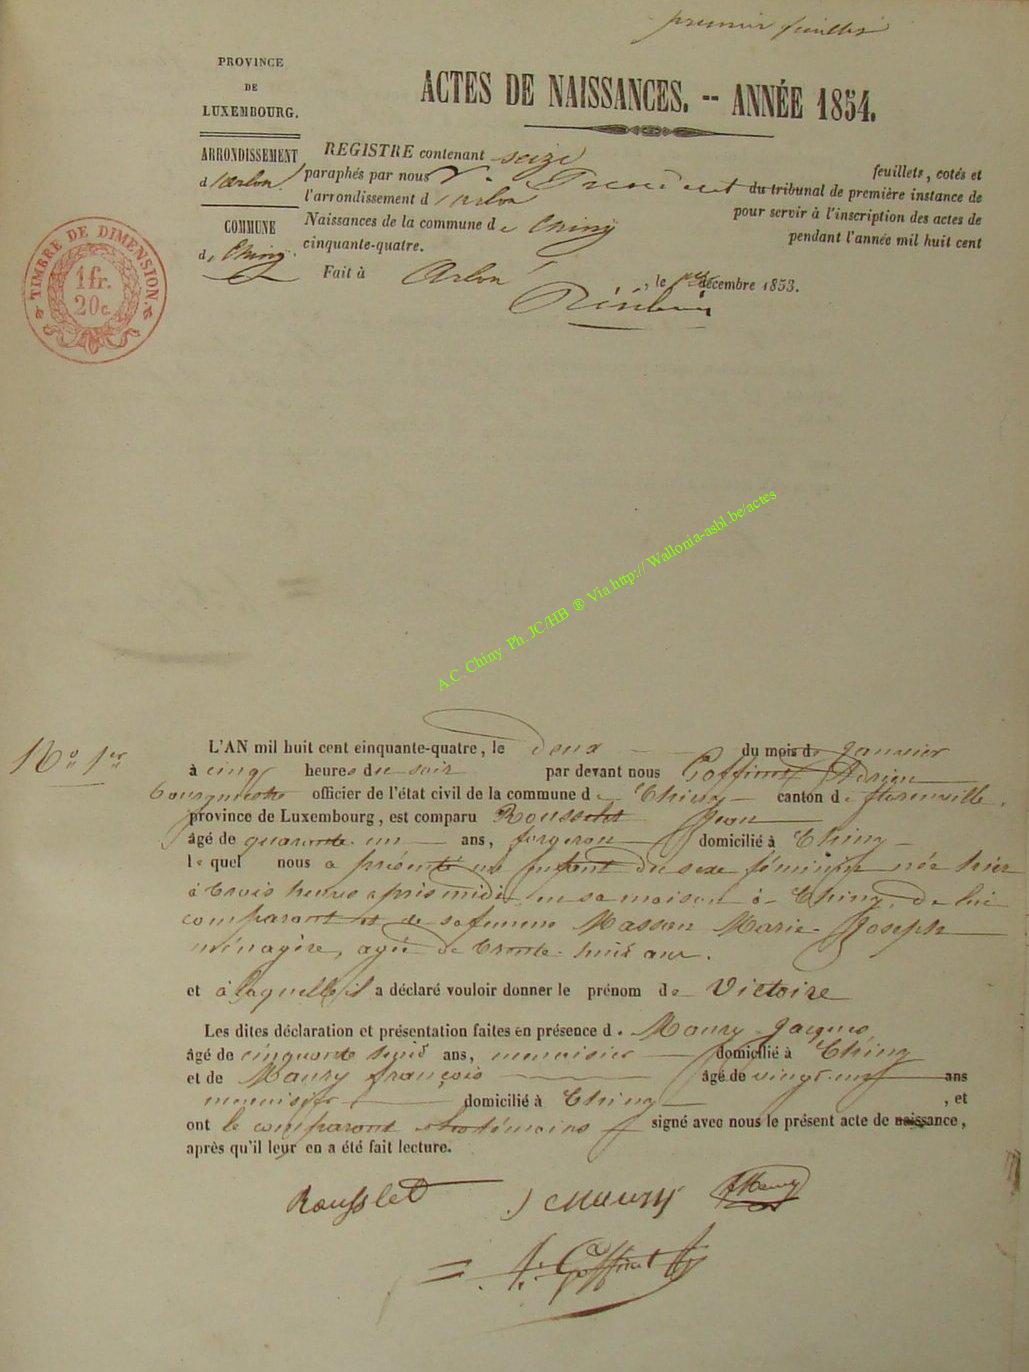 premier feuillet
PROVINCE
DE
LUXEMBOURG.
ACTES DE NAISSANCES. -- ANNÉE 1854.
ARRONDISSEMENT
d'Arlon
COMMUNE
de Chiny.
REGISTRE contenant seize feuillets, cotés et
paraphés par nous Président du tribunal de première instance de
l'arrondissement d'Arlon pour servir à l'inscription des actes de
Naissances de la commune de Chiny pendant l'année mil huit cent
cinquante-quatre.
Fait à Arlon, le décembre 1853.
TIMBRE DE DIMENSION.
1 fr.
20 c.
A.C. Chiny Ph. JC/HB ® Via.http:// Wallonia-asbl.be/actes
No 1er
L'AN mil huit cent cinquante-quatre, le deux du mois de janvier
à cinq heures du soir par devant nous Goffinet Adrien
bourgmestre officier de l'état civil de la commune de Chiny canton de florenville,
province de Luxembourg, est comparu Rousselet Jean
âgé de quarante un ans, forgeron domicilié à Chiny
lequel nous a présenté un enfant du sexe féminin née hier
à trois heures après midi en sa maison à Chiny, de lui
comparant et de sa femme Masson Marie Joseph
ménagère, agée de trente huit ans.
et à laquelle il a déclaré vouloir donner le prénom de Victoire
Les dites déclaration et présentation faites en présence de Maury Jacques
âgé de cinquante huit ans, menuisier domicilié à Chiny
et de Maury françois âgé de vingt-neuf ans
menuisier domicilié à Chiny, et
ont le comparant et les témoins signé avec nous le présent acte de naissance,
après qu'il leur en a été fait lecture.
Rousslet J Maury FMaury
A. Goffinet